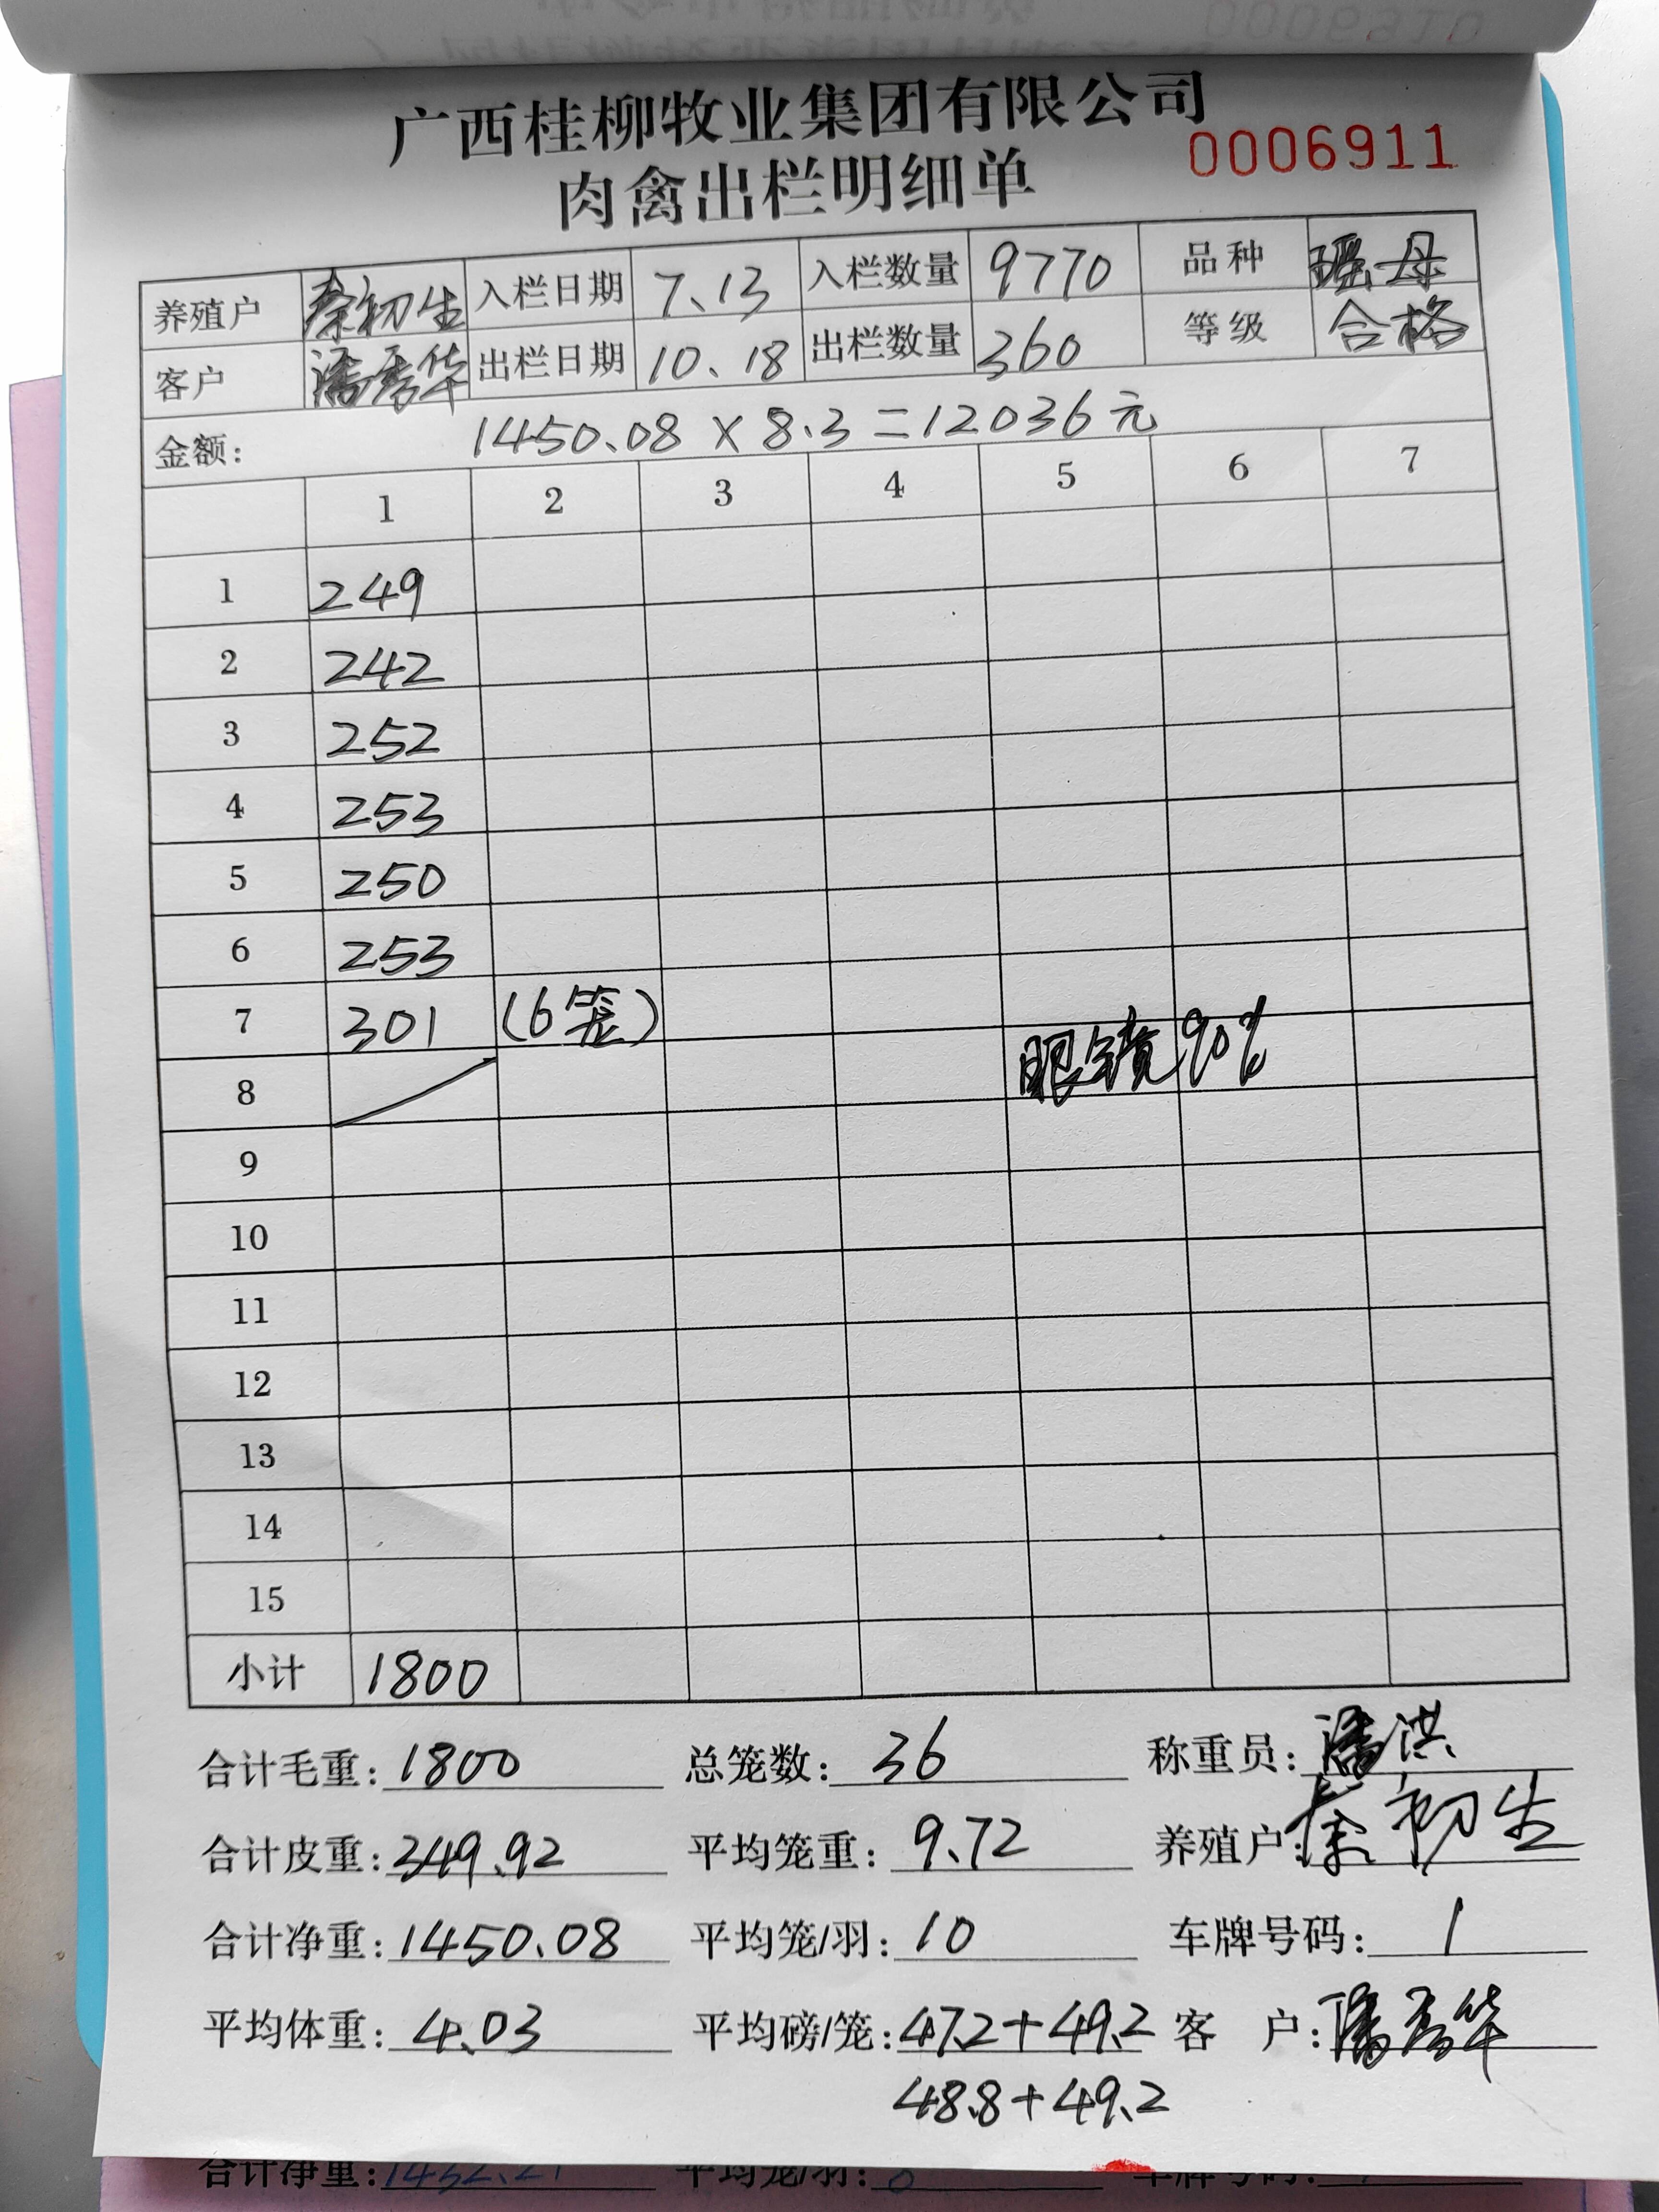 广西桂柳牧业集团有限公司
肉禽出栏明细单 0006911
养殖户 秦初生 入栏日期 7.13 入栏数量 9770 品种 瑶母
客户 潘秀华 出栏日期 10.18 出栏数量 360 等级 合格
金额: 1450.08 × 8.3 = 12036元
1 2 3 4 5 6 7
1 249
2 242
3 252
4 253
5 250
6 253
7 301 (6笼)
8 眼镜90%
9
10
11
12
13
14
15
小计 1800
合计毛重: 1800 总笼数: 36 称重员: 潘洪
合计皮重: 349.92 平均笼重: 9.72 养殖户: 秦初生
合计净重: 1450.08 平均笼/羽: 10 车牌号码: 1
平均体重: 4.03 平均磅/笼: 47.2+49.2 客 户: 潘秀华
48.8+49.2
合计净重: 1452.21 平均笼/羽: 车牌号码: